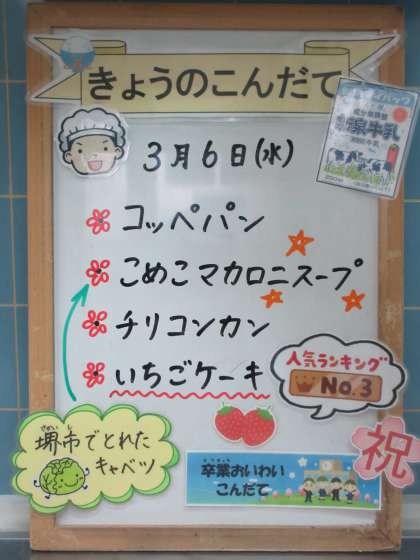 きょうのこんだて
3月6日(水)
コッペパン
こめこマカロニスープ
チリコンカン
いちごケーキ
人気ランキング
No.3
堺市でとれた
キャベツ
祝
卒業おいわい
こんだて